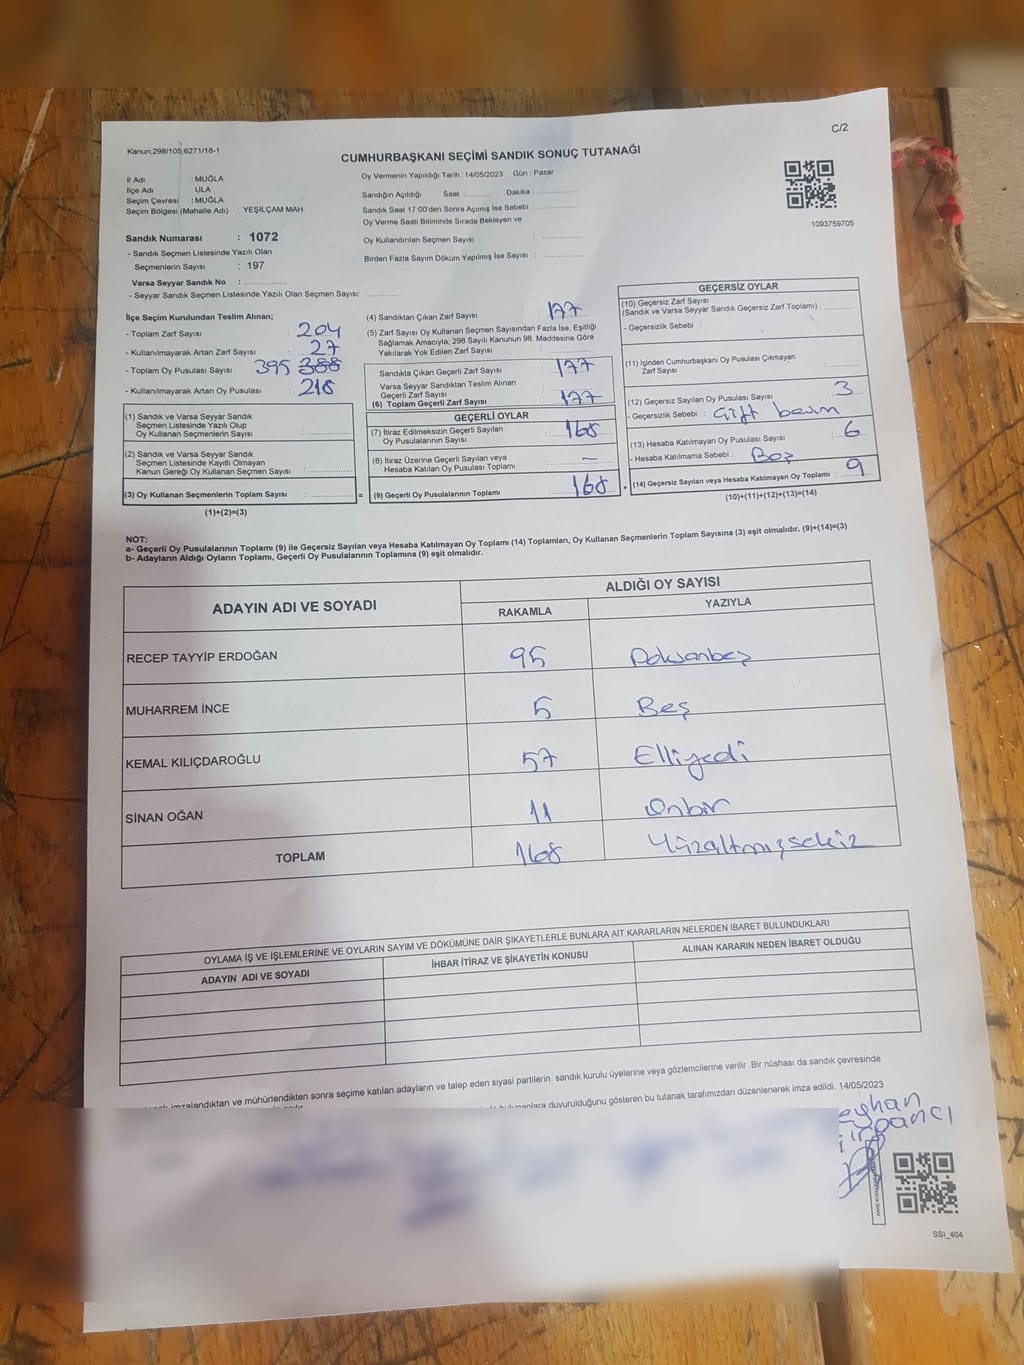 C/2
Kanun:298/105,6271/18-1
CUMHURBAŞKANI SEÇİMİ SANDIK SONUÇ TUTANAĞI
İl Adı : MUĞLA
İlçe Adı : ULA
Seçim Çevresi : MUĞLA
Seçim Bölgesi (Mahalle Adı) : YEŞİLÇAM MAH.
Sandık Numarası : 1072
- Sandık Seçmen Listesinde Yazılı Olan
Seçmenlerin Sayısı : 197
Varsa Seyyar Sandık No :
- Seyyar Sandık Seçmen Listesinde Yazılı Olan Seçmen Sayısı:
Oy Vermenin Yapıldığı Tarih :14/05/2023 Gün : Pazar
Sandığın Açıldığı Saat : Dakika :
Sandık Saat 17:00'den Sonra Açımış İse Sebebi :
Oy Verme Saati Bitiminde Sırada Bekleyen ve
Oy Kullandırılan Seçmen Sayısı :
Birden Fazla Sayım Döküm Yapılmış İse Sayısı :
1093759705
İlçe Seçim Kurulundan Teslim Alınan;
- Toplam Zarf Sayısı : 204
- Kullanılmayarak Artan Zarf Sayısı : 27
- Toplam Oy Pusulası Sayısı : 395
- Kullanılmayarak Artan Oy Pusulası : 218
(1) Sandık ve Varsa Seyyar Sandık
Seçmen Listesinde Yazılı Olup
Oy Kullanan Seçmenlerin Sayısı :
(2) Sandık ve Varsa Seyyar Sandık
Seçmen Listesinde Kayıtlı Olmayan
Kanun Gereği Oy Kullanan Seçmen Sayısı :
(3) Oy Kullanan Seçmenlerin Toplam Sayısı : =
(1)+(2)=(3)
(4) Sandıktan Çıkan Zarf Sayısı : 177
(5) Zarf Sayısı Oy Kullanan Seçmen Sayısından Fazla İse, Eşitliği
Sağlamak Amacıyla, 298 Sayılı Kanunun 98. Maddesine Göre
Yakılarak Yok Edilen Zarf Sayısı :
Sandıkta Çıkan Geçerli Zarf Sayısı : 177
Varsa Seyyar Sandıktan Teslim Alınan
Geçerli Zarf Sayısı :
(6) Toplam Geçerli Zarf Sayısı : 177
GEÇERLİ OYLAR
(7) İtiraz Edilmeksizin Geçerli Sayılan
Oy Pusulalarının Sayısı : 168
(8) İtiraz Üzerine Geçerli Sayılan veya
Hesaba Katılan Oy Pusulası Toplamı : —
(9) Geçerli Oy Pusulalarının Toplamı : 168 +
GEÇERSİZ OYLAR
(10) Geçersiz Zarf Sayısı
(Sandık ve Varsa Seyyar Sandık Geçersiz Zarf Toplamı) :
- Geçersizlik Sebebi :
(11) İçinden Cumhurbaşkanı Oy Pusulası Çıkmayan
Zarf Sayısı :
(12) Geçersiz Sayılan Oy Pusulası Sayısı : 3
- Geçersizlik Sebebi : Çift basım
(13) Hesaba Katılmayan Oy Pusulası Sayısı : 6
- Hesaba Katılmama Sebebi : Boş
(14) Geçersiz Sayılan veya Hesaba Katılmayan Oy Toplamı : 9
(10)+(11)+(12)+(13)=(14)
NOT:
a- Geçerli Oy Pusulalarının Toplamı (9) ile Geçersiz Sayılan veya Hesaba Katılmayan Oy Toplamı (14) Toplamları, Oy Kullanan Seçmenlerin Toplam Sayısına (3) eşit olmalıdır. (9)+(14)=(3)
b- Adayların Aldığı Oyların Toplamı, Geçerli Oy Pusulalarının Toplamına (9) eşit olmalıdır.
ADAYIN ADI VE SOYADI
ALDIĞI OY SAYISI
RAKAMLA YAZIYLA
RECEP TAYYİP ERDOĞAN 95 Doksanbeş
MUHARREM İNCE 5 Beş
KEMAL KILIÇDAROĞLU 57 Elliyedi
SİNAN OĞAN 11 Onbir
TOPLAM 168 Yüzaltmışsekiz
OYLAMA İŞ VE İŞLEMLERİNE VE OYLARIN SAYIM VE DÖKÜMÜNE DAİR ŞİKAYETLERLE BUNLARA AİT KARARLARIN NELERDEN İBARET BULUNDUKLARI
ADAYIN ADI VE SOYADI İHBAR İTİRAZ VE ŞİKAYETİN KONUSU ALINAN KARARIN NEDEN İBARET OLDUĞU
imzalandıktan ve mühürlendikten sonra seçime katılan adayların ve talep eden siyasi partilerin sandık kurulu üyelerine veya gözlemcilerine verilir .Bir nüshası da sandık çevresinde
duyurulduğunu gösteren bu tutanak tarafımızdan düzenlenerek imza edildi. 14/05/2023
SSI_404